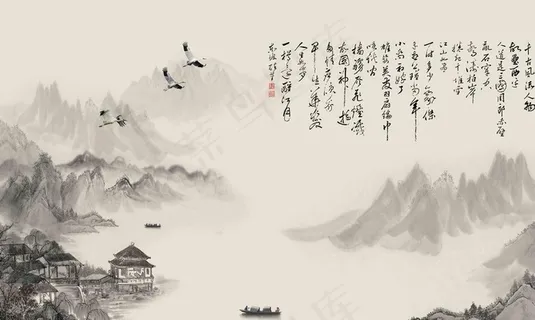 千古風流人物
故壘西邊
人道是三國周郎赤壁
亂石穿空
驚濤拍岸
捲起千堆雪
江山如畫
一時多少豪傑
遙想公瑾當年
小喬初嫁了
雄姿英發羽扇綸巾
談笑間
檣櫓灰飛煙滅
故國神遊
多情應笑我
早生華髮
人生如夢
一樽還酹江月